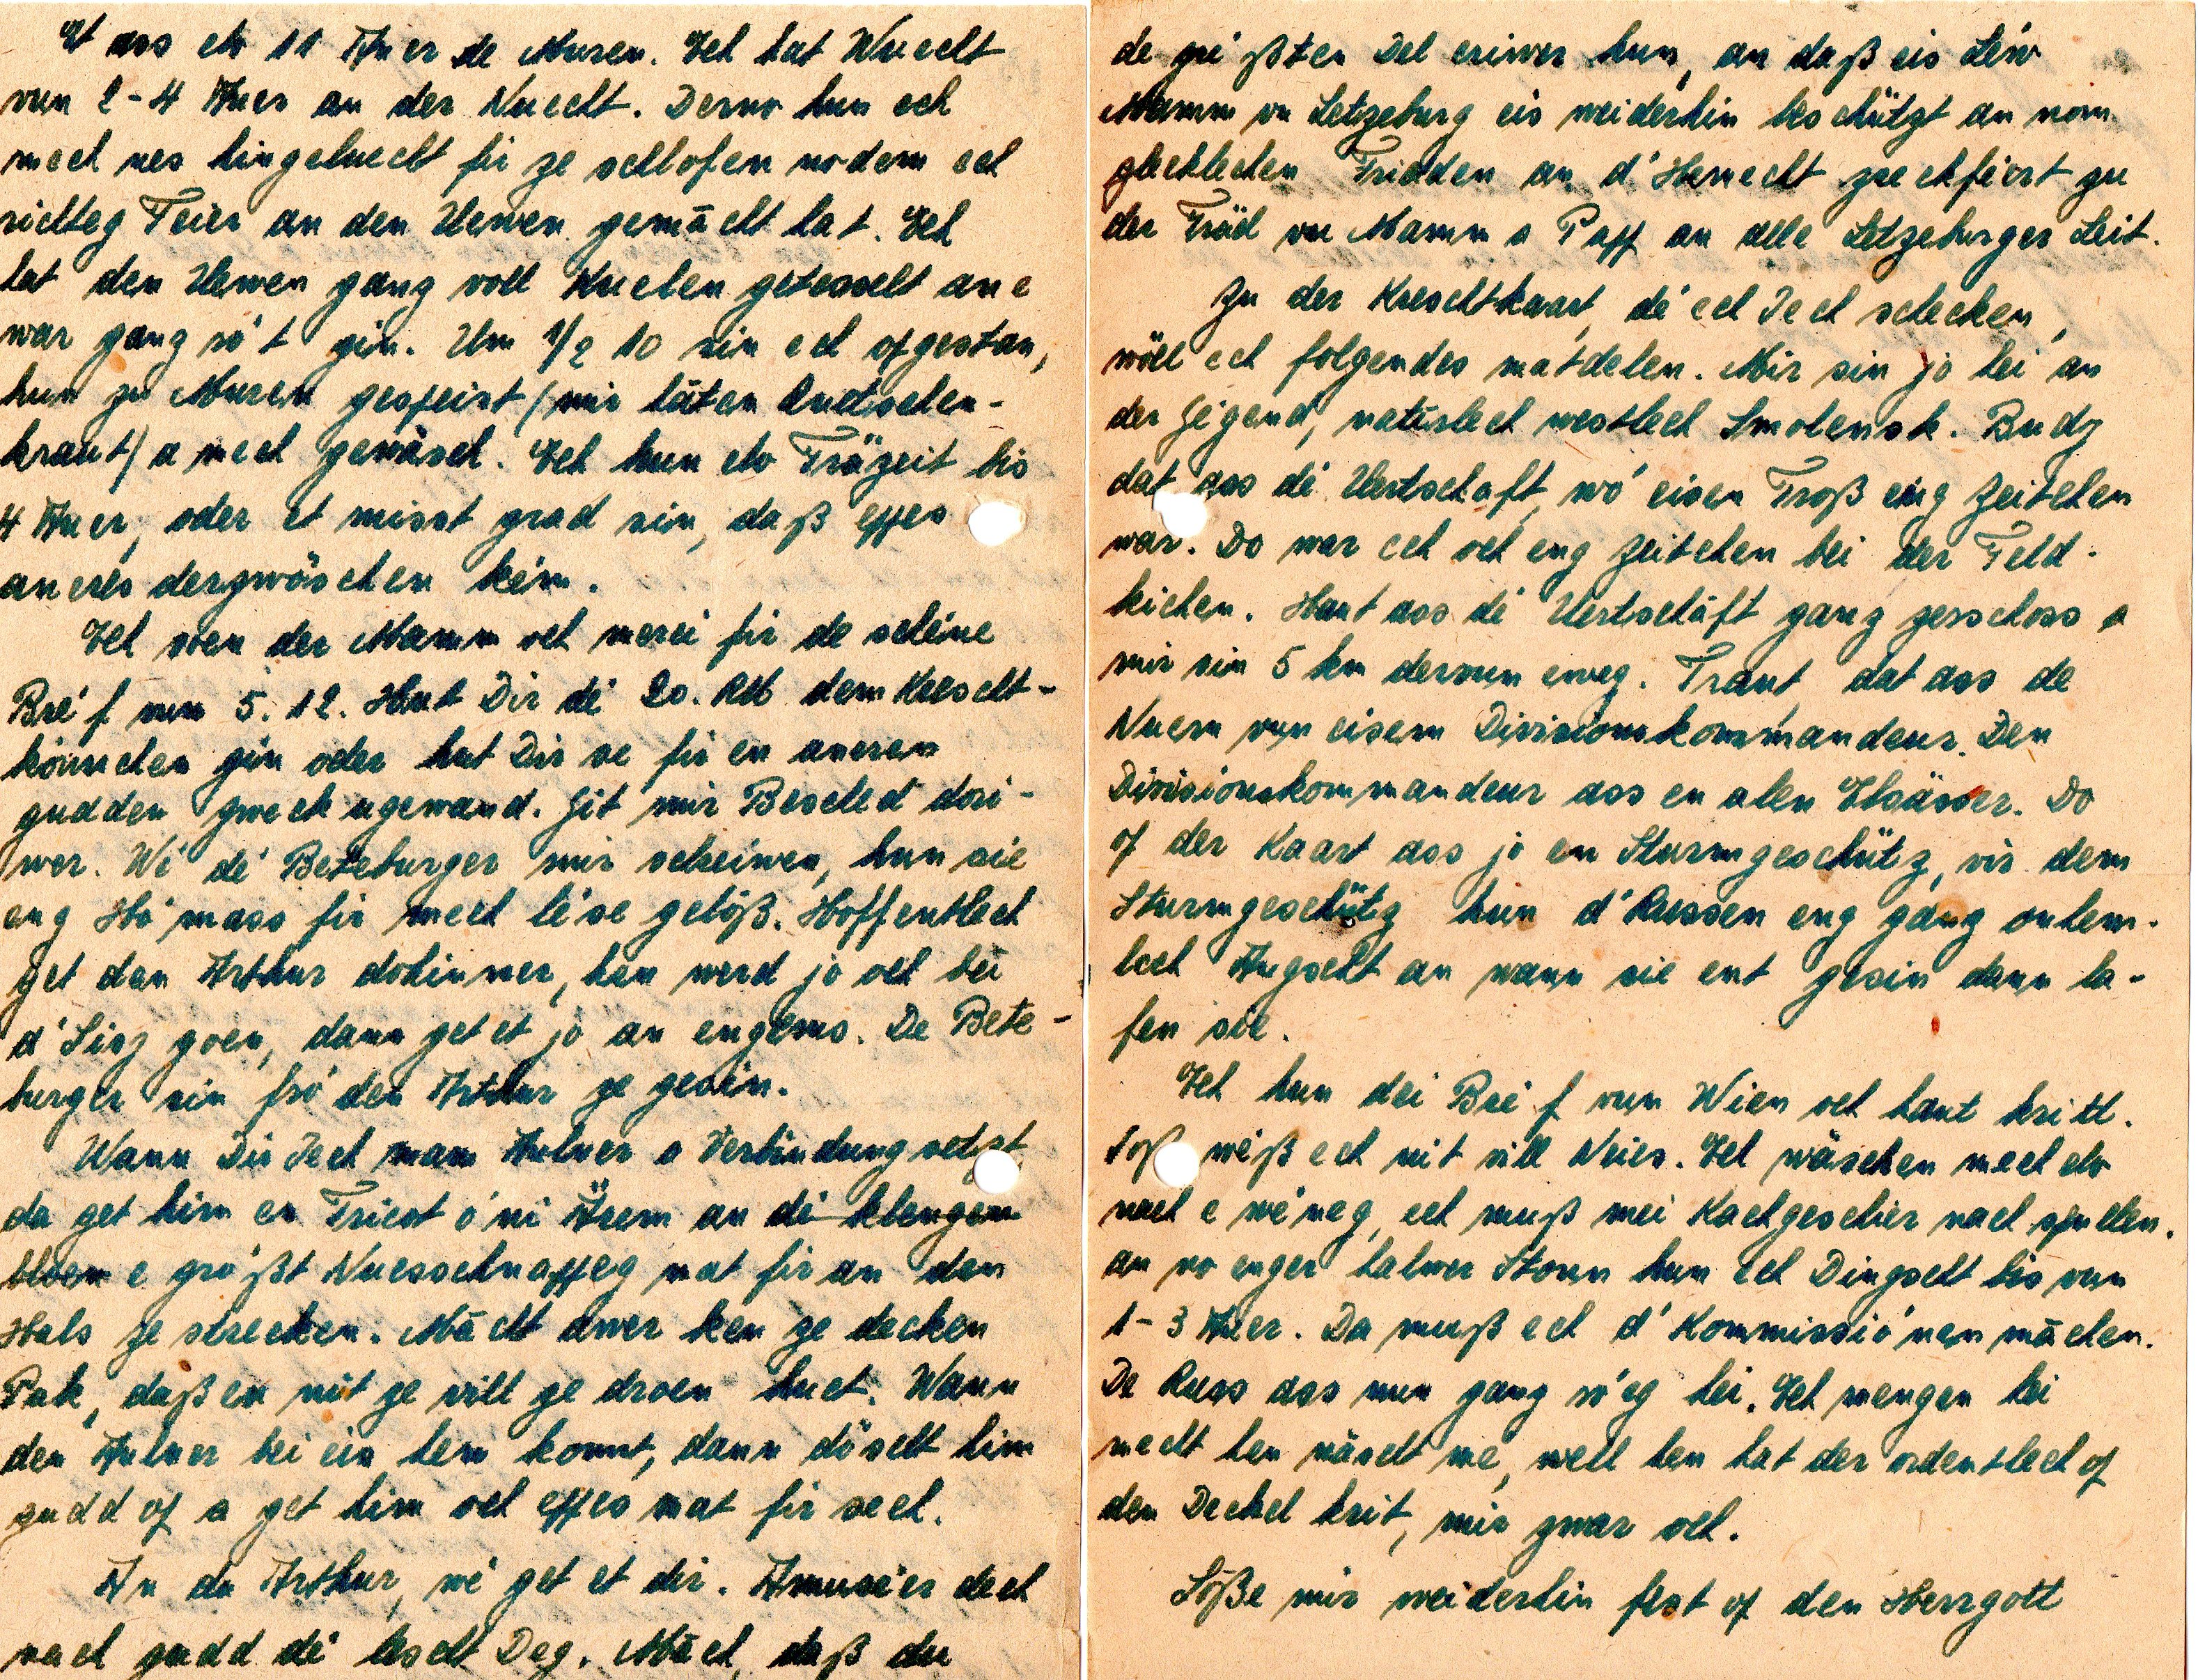 Et ass elo 11 Auer de Muren. Ech hat Wuecht
vun 2-4 Auer an der Nuecht. Derno hun ech
mech nes hingeluecht fir ze schlofen nodem ech
richteg Feier an den Uewen gemächt hat. Ech
hat den Uewen ganz voll Kuelen getosselt an e
war ganz ró't gin. Um 1/2 10 sin ech ofgestan,
hun zu Muren gespeist (mir häten Quetschen-
kraut) a mech gewäsch. Ech hun elo Fräzeit bis
4 Auer, oder et misst grad sin, daß eppes
aneres dergwöschen kém.
Ech soen der Mamm och merci fir de schéine
Bré'f vum 5.12. Hut Dir dé 20. RM dem Krescht-
könnchen gin oder hut Dir se fir en aneren
gudden Zweck ugewand. Git mir Bescheed dori-
wer. Wé dé Beteburger mir schreiwen, hun sie
eng Hó'mass fir mech lé'se gelöß. Hoffentlech
get den Arthur dohinner, hen werd jo och bei
d'Sisy goen, dann get et jo an engems. De Bete-
burger sin fró den Arthur ze gesin.
Wann Dir Iech mam Aulner a Verbindung setzt
da get him en Tricot ó'ni Ärem an dé klengen
bloen e gró'ßt Nuesschnappeg mat fir an den
Hals ze strecken. Mächt awer ken ze decken
Pak, daß en nit ze vill ze droen huet. Wann
den Aulner bei eis hem kommt, dann döscht him
gudd of a get him och eppes mat fir sech.
An du Arthur, wé get et dir. Amusé'er dech
nach gudd dé lescht Deg. Mäch, daß du
de gré'ßten Del eriwer hun, an daß eis Léiw
Mamm vu Letzeburg eis weiderhin beschützt an nom
glecklechen Fridden an d'Hemecht zréckféert zu
der Fräd vu Mamm a Papp an alle Letzeburger Leit.
Zu der Kreschtkaart, dé ech Iech schecken,
wöll ech folgendes matdelen. Mir sin jo hei an
der Gégend, natirlech westlech Smolensk. Budy
dat ass dé Uertschaft, wó eisen Troß eng Zeitchen
war. Do war ech och eng Zeitchen bei der Feld-
kichen. Haut ass dé Uertschäft ganz zerschoss a
mir sin 5 km dervun eweg. Traut, dat ass de
Nuem vun eisem Divisionskommandeur. Den
Divisionskommandeur ass en alen Elsässer. Do
of der Kaart ass jo en Sturmgeschütz, vir dem
Sturmgeschütz hun d'Russen eng ganz onhem-
lech Angscht an wann sie ent gesin dann la-
fen sie.
Ech hun dei Bré'f vum Wien och haut kritt.
Soß wéß ech nit vill Neies. Ech wäschen mech elo
nach e wé'neg, ech muß mei Kachgeschier nach spullen.
an no enger halwer Stonn hun ech Dingscht bis vun
1-3 Auer. Da muß ech d'Kommissió'nen mächen.
De Russ ass nun ganz ró'eg hei. Ech mengen hei
mecht hen näscht mé, well hen hat der ordentlech of
den Deckel krit, mir zwar och.
Löße mir weiderhin fest of den Herrgott